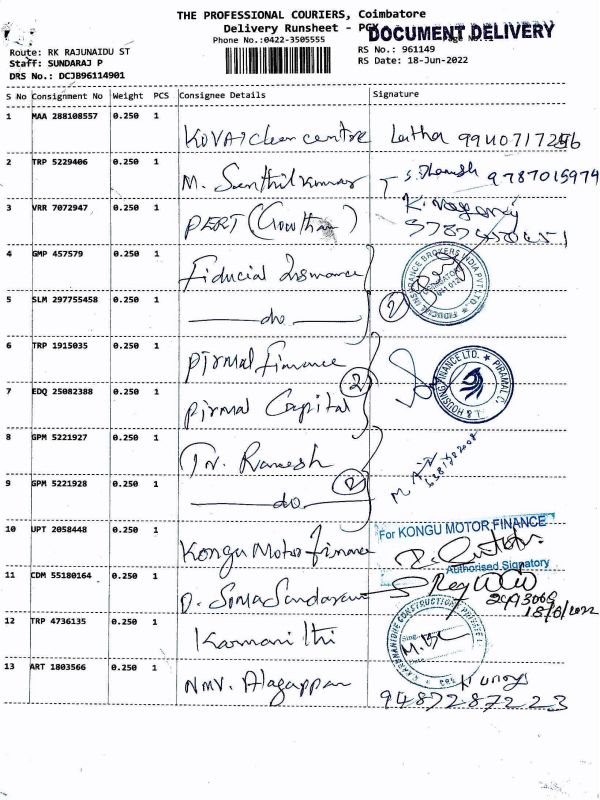 THE PROFESSIONAL COURIERS, Coimbatore
Delivery Runsheet - PGX
DOCUMENT DELIVERY
Phone No.:0422-3505555
Route: RK RAJUNAIDU ST
Staff: SUNDARAJ P
DRS No.: DCJB96114901
RS No.: 961149
RS Date: 18-Jun-2022
S No Consignment No Weight PCS Consignee Details Signature
1 MAA 288108557 0.250 1 KOVAI clean centre Latha
2 TRP 5229406 0.250 1 M. Senthil Kumar 9787015974
3 VRR 7072947 0.250 1 PERT (Gowtham)
4 GMP 457579 0.250 1 Fiducial Insurance
FIDUCIAL INSURANCE BROKERS INDIA PVT. LTD.
5 SLM 297755458 0.250 1 do 2
6 TRP 1915035 0.250 1 Pirmal Finance
2
& HOUSING FINANCE LTD. PIRAMAL
7 EDQ 25082388 0.250 1 Pirmal Capital
8 GPM 5221927 0.250 1 Tr. Ramesh
9 GPM 5221928 0.250 1 do 2
10 UPT 2058448 0.250 1 Kongu Motor finance
For KONGU MOTOR FINANCE
Authorised Signatory
11 CDM 55180164 0.250 1 D. Soma Sundaram
18/6/2022
12 TRP 4736135 0.250 1
13 ART 1803566 0.250 1 NMV. Alagappan
9487287223